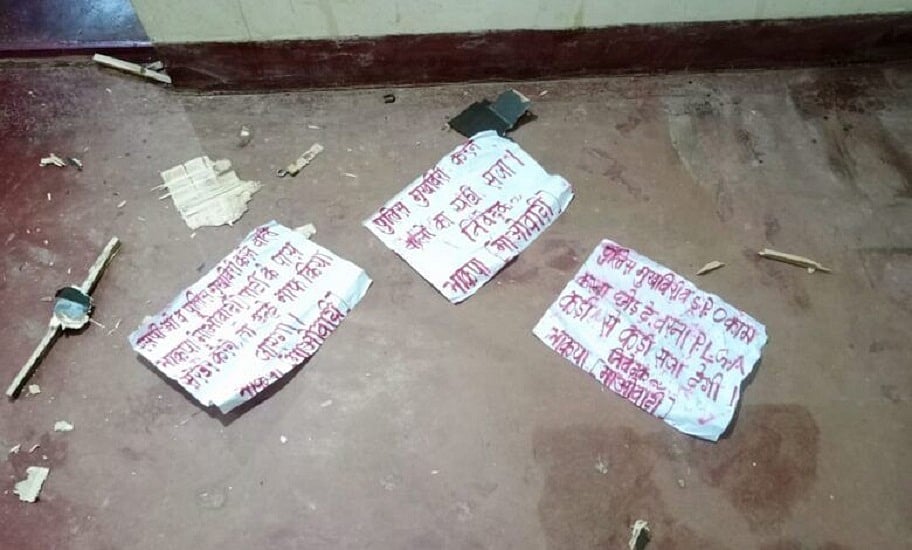 पुलिस मुखबिरी करने
वालों का यही सजा।
निवेदक
भाकपा (माओवादी)
पुलिस मुखबिरी करने वाले
भाकपा माओवादी पार्टी के पास
माफ किया
जाएगा।
भाकपा (माओवादी)
पुलिस मुखबिरी व SPO काम
करना छोड़ दे वरना (PLGA
कड़ी से कड़ी सजा देगी।
निवेदक
भाकपा (माओवादी)